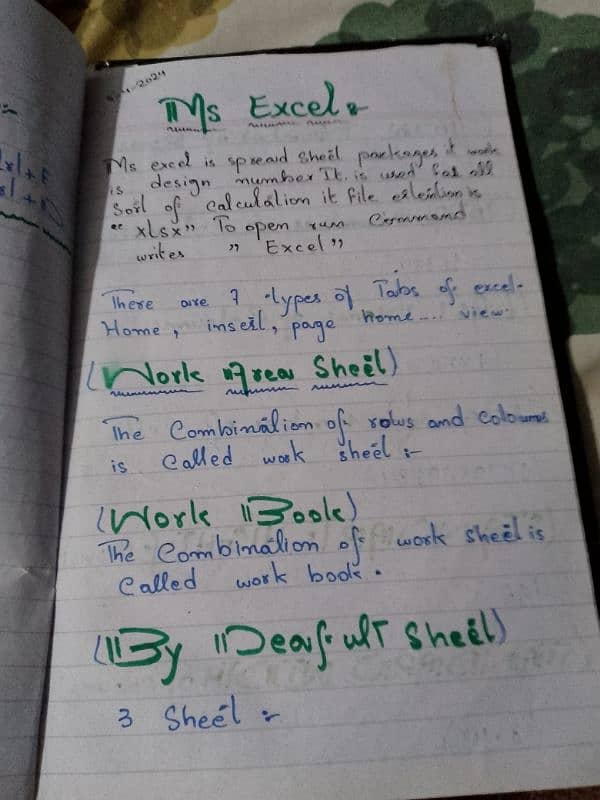 Ms Excel:-
Ms excel is spread sheet packages it work
is design number It is used for all
Sort of calculation it file extention is
"xlsx" To open run Command
writes " Excel"
There are 7 types of Tabs of excel.
Home, insert, page home.... view.
(Work Area Sheet)
The Combination of rows and coloums
is Called work sheet :-
(Work Book)
The Combination of work sheet is
Called work book.
(By Deafult Sheet)
3 Sheet :-